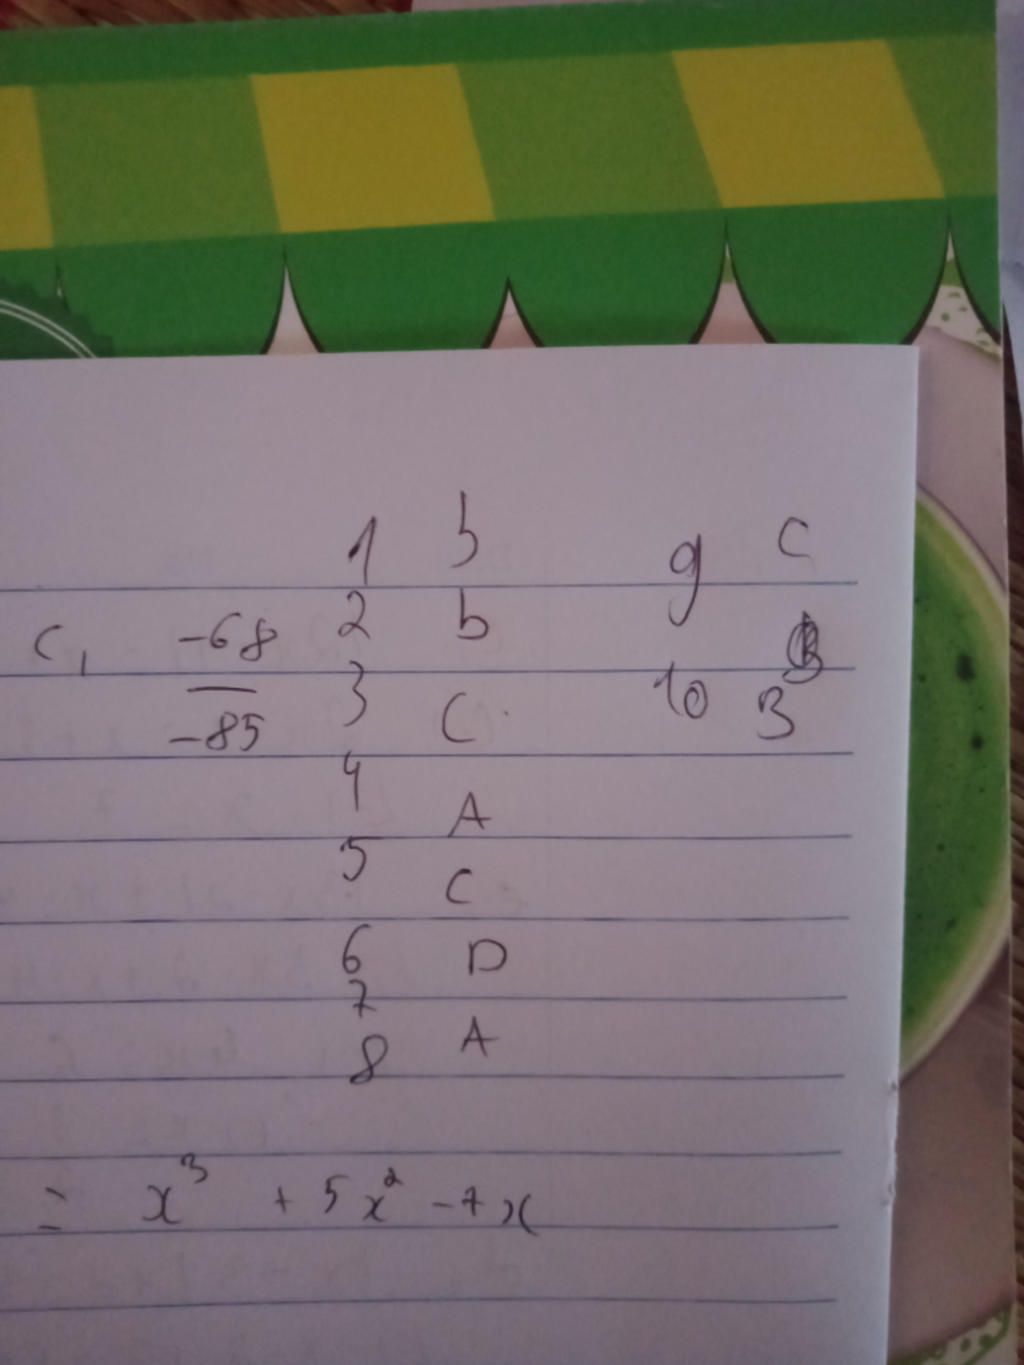 1 b
2 b
3 C
4 A
5 C
6 D
7
8 A
9 C
10 B
C, -68
-85
= x³ + 5x² - 7x